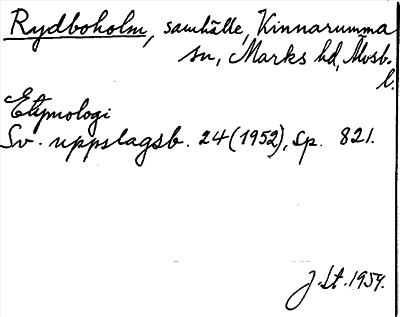 Rydboholm, samhälle, Kinnarumma
sn, Marks hd, Älvsb.
l.
Etymologi
Sv. uppslagsb. 24 (1952), sp. 821.
J. St. 1959.